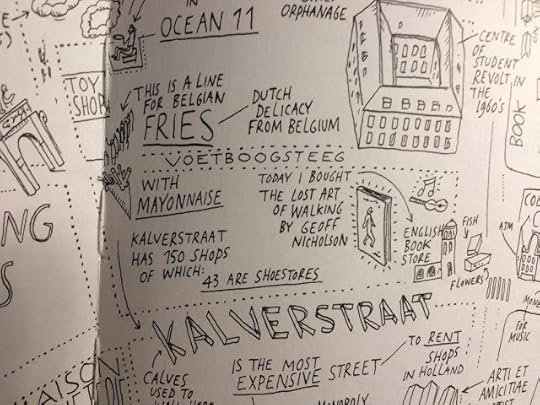 IN
OCEAN 11
ORPHANAGE
CENTRE
OF
STUDENT
REVOLT IN
THE
1960's
BOOK
TOY
SHOP
THIS IS A LINE
FOR BELGIAN
FRIES
DUTCH
DELICACY
FROM BELGIUM
VOETBOOGSTEEG
WITH
MAYONNAISE
TODAY I BOUGHT
THE LOST ART
OF WALKING
BY GEOFF
NICHOLSON
ENGLISH
BOOK
STORE
FISH
ATM
FLOWERS
KALVERSTRAAT
HAS 150 SHOPS
OF WHICH:
43 ARE SHOESTORES
KALVERSTRAAT
FOR
MUSIC
CALVES
USED TO
IS THE MOST
EXPENSIVE STREET
TO RENT
SHOPS
IN HOLLAND
MONOPOLY
ARTI ET
AMICITIAE